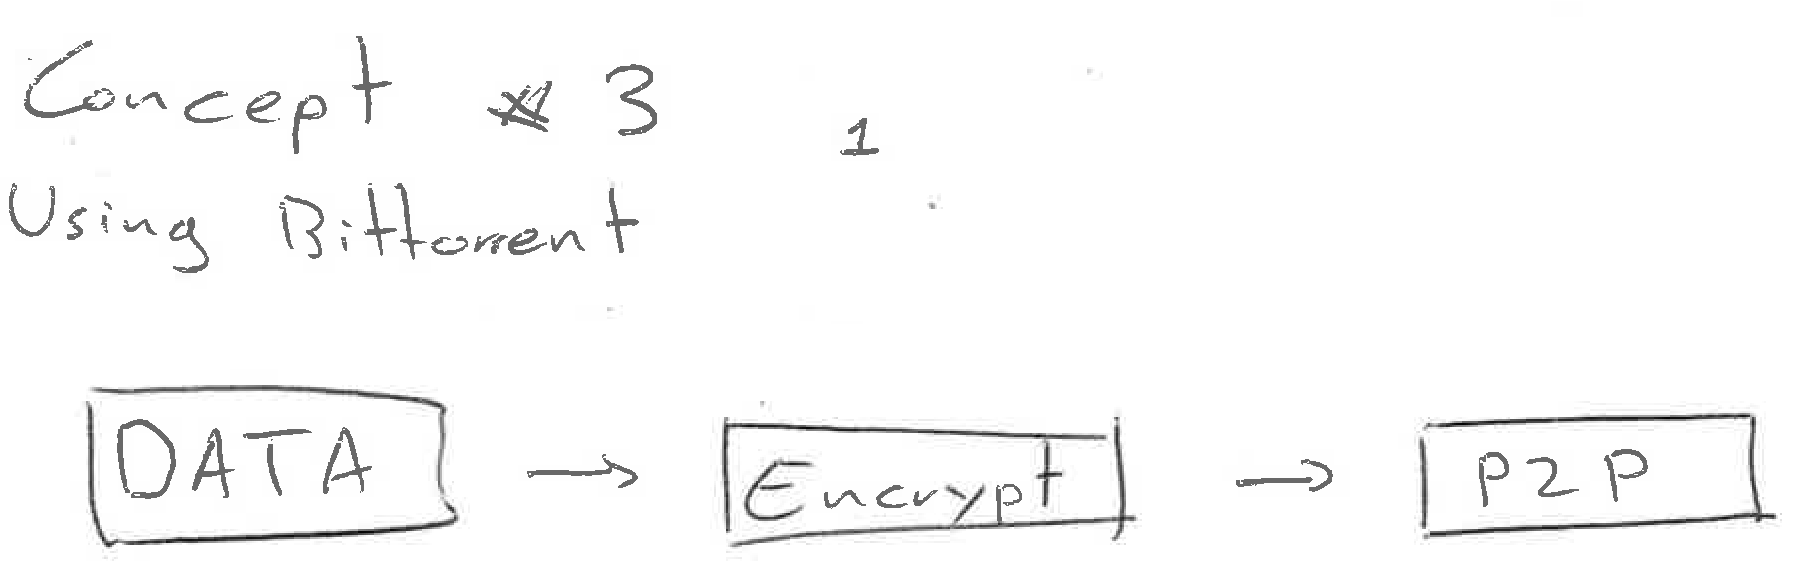 Concept # 3
1
Using Bittorrent
DATA → Encrypt → P2P